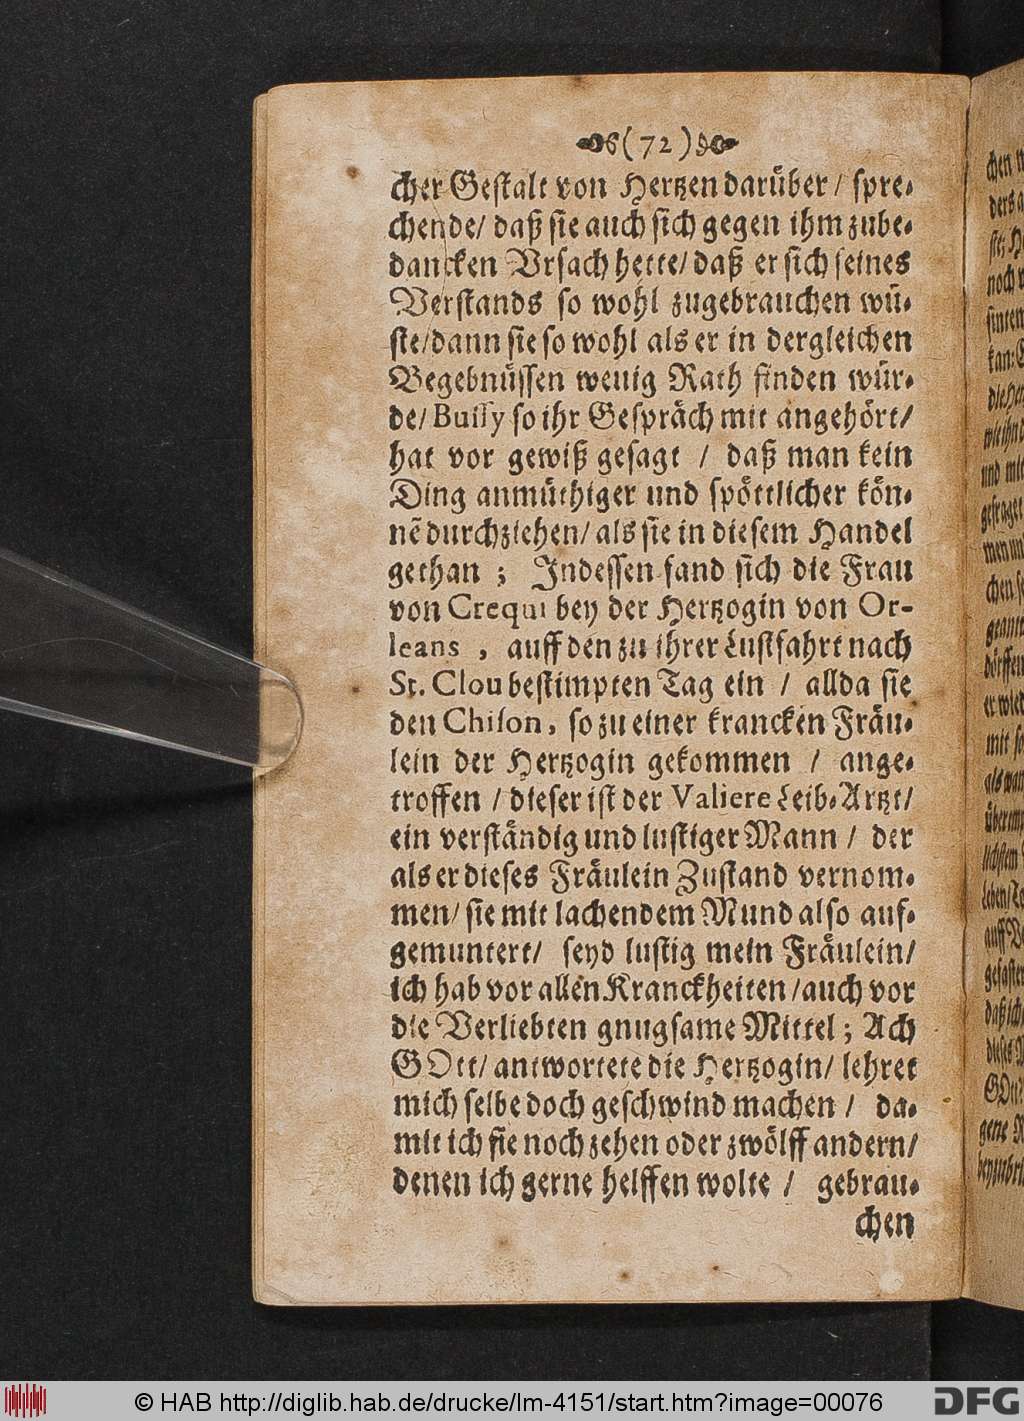 (72)
cher Gestalt von Hertzen darüber / spre-
chende/ daß sie auch sich gegen ihm zube-
dancken Vrsach hette/ daß er sich seines
Verstands so wohl zugebrauchen wü-
ste/dann sie so wohl als er in dergleichen
Begebnüssen wenig Rath finden wür-
de/ Bussy so ihr Gespräch mit angehört/
hat vor gewiß gesagt / daß man kein
Ding anmüthiger und spöttlicher kön-
nẽ durchziehen/ als sie in diesem Handel
gethan ; Indessen fand sich die Frau
von Crequi bey der Hertzogin von Or-
leans , auff den zu ihrer Lustfahrt nach
St. Clou bestimpten Tag ein / allda sie
den Chilon, so zu einer krancken Fräu-
lein der Hertzogin gekommen / ange-
troffen / dieser ist der Valiere Leib-Artzt/
ein verständig und lustiger Mann / der
als er dieses Fräulein Zustand vernom-
men/ sie mit lachendem Mund also auf-
gemuntert/ seyd lustig mein Fräulein/
ich hab vor allen Kranckheiten /auch vor
die Verliebten gnugsame Mittel ; Ach
GOtt/ antwortete die Hertzogin/ lehret
mich selbe doch geschwind machen / da-
mit ich sie noch zehen oder zwölff andern/
denen ich gerne helffen wolte / gebrau-
chen
© HAB http://diglib.hab.de/drucke/lm-4151/start.htm?image=00076
DFG